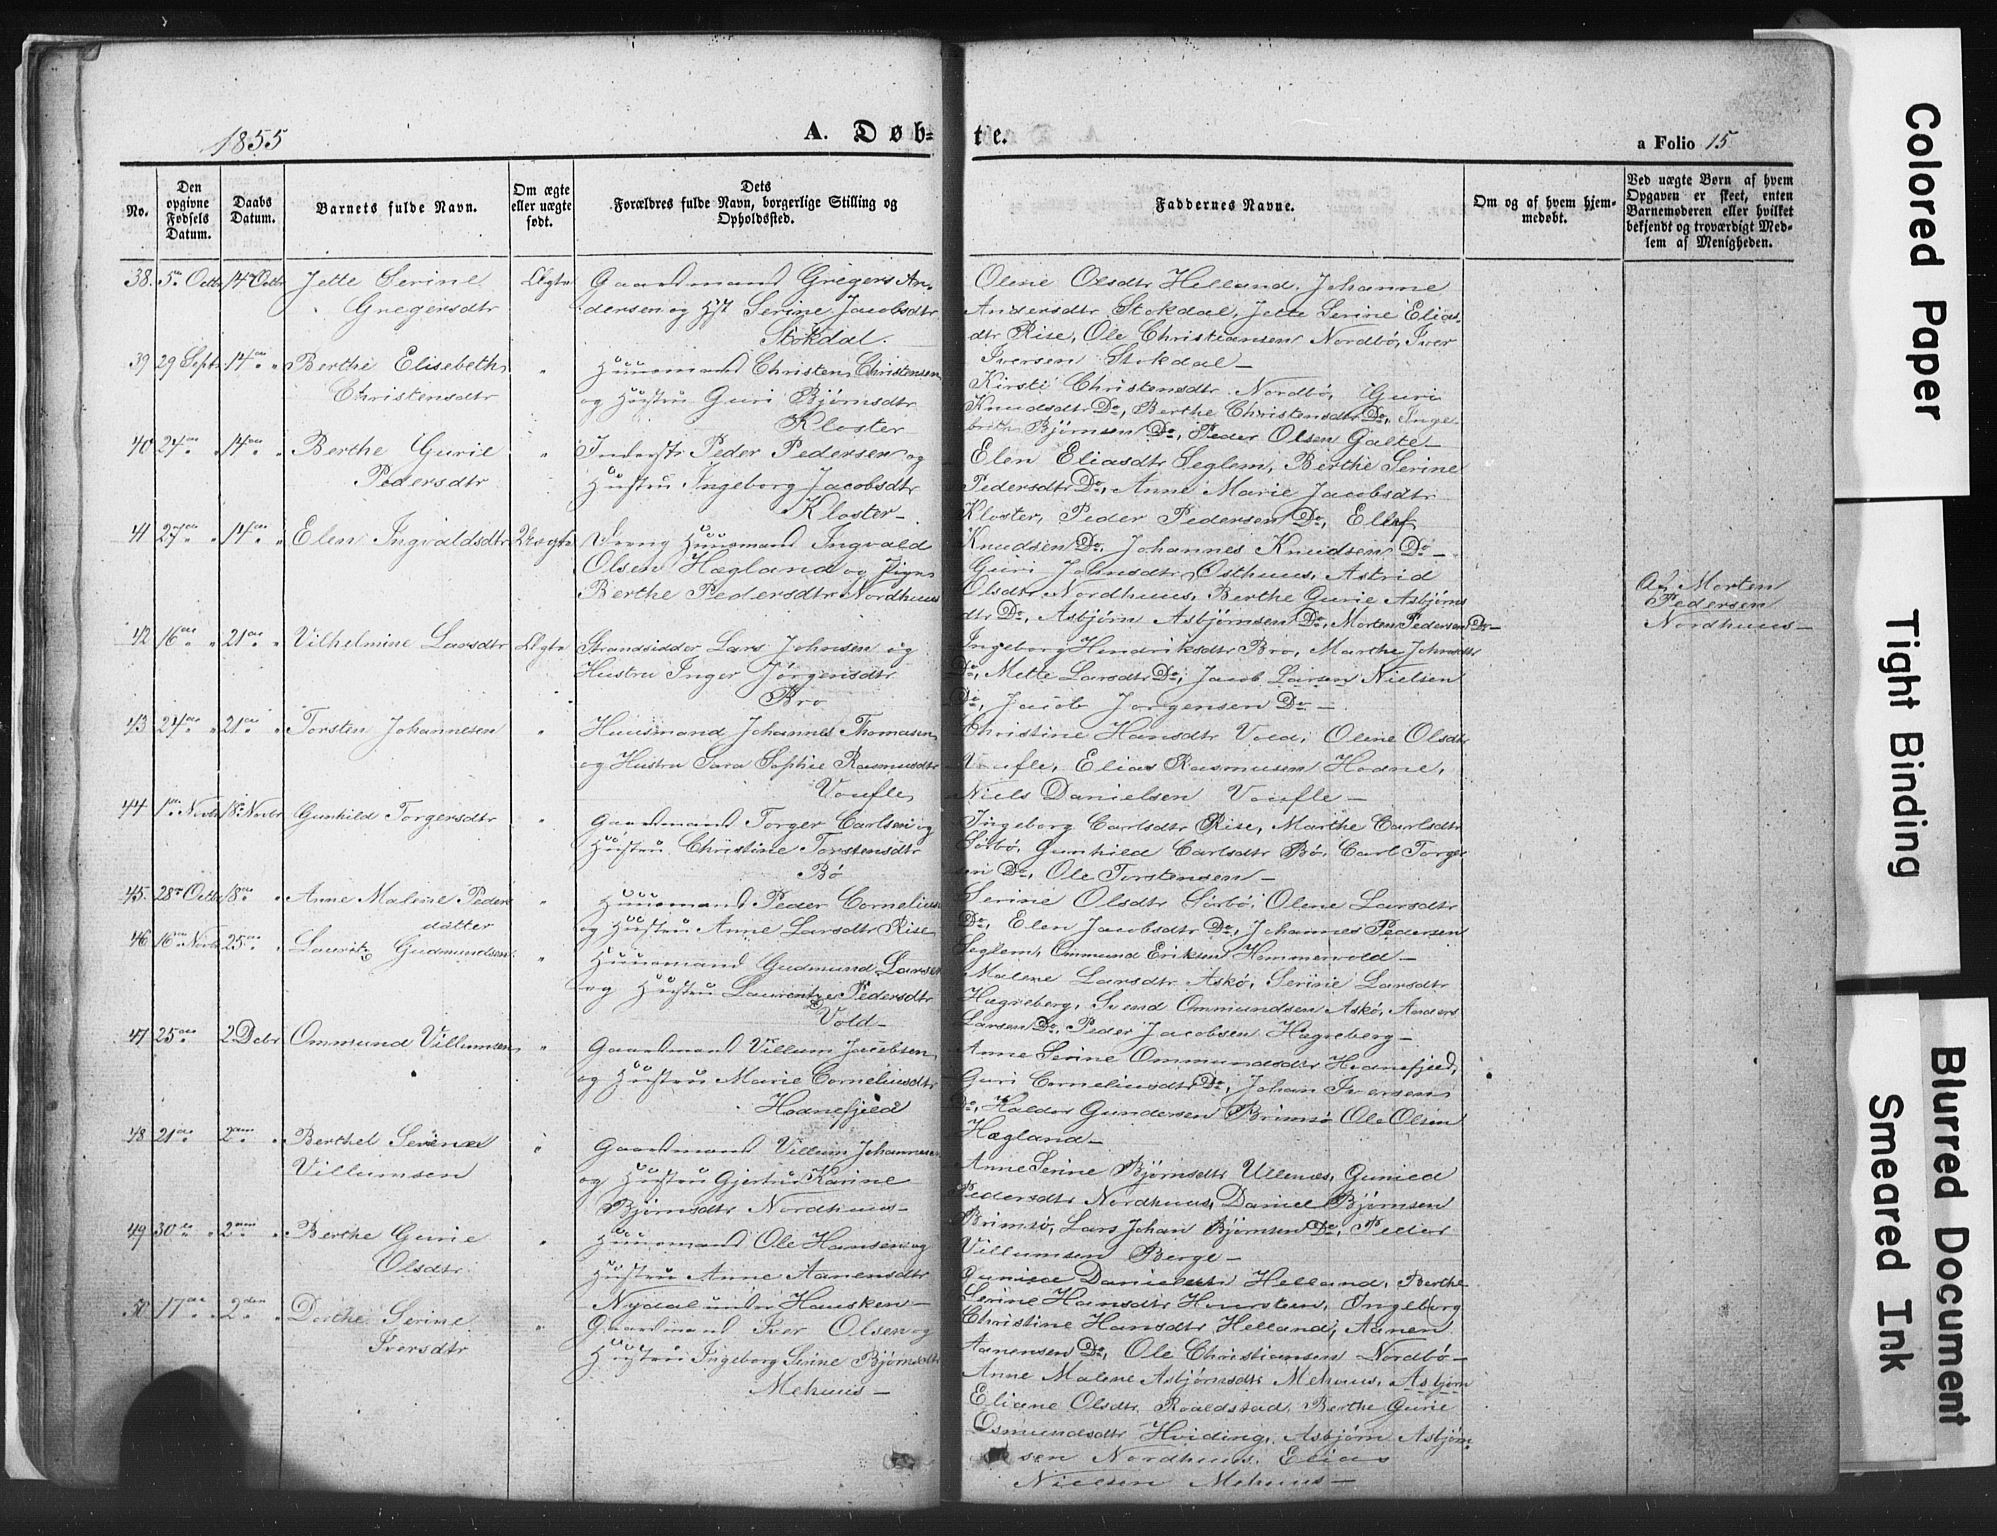 1855
A. Døb-
te.
a Folio 15
No.
Den opgivne Fødsels Datum.
Daabs Datum.
Barnets fulde Navn.
Om ægte eller uægte født.
Dets Forældres fulde Navn, borgerlige Stilling og Opholdssted.
Faddernes Navne.
Om og af hvem hjemmedøbt.
Ved uægte Børn af hvem Opgaven er skeet, enten Barnemoderen eller hvilket bekjendt og troværdigt Medlem af Menigheden.
38. 5 Octb 14 Octb Jette Serine Ægte Gaardmand Gregers An-
Gregersdtr dersen og Serine Jacobsdtr
Stokdal.
Olene Olsdtr Helland, Johanne
Andersdtr Stokdal, Jette Serine Elias
dtr Rise, Ole Christiansen Nordbø, Iver
Iversen Stokdal —
39 29 Septb 14 " Berthe Elisebeth " Huusmand Christen Christensen
Christensdtr og Hustru Guri Bjørnsdtr
Kloster
Kirsti Christensdtr Nordbø, Guri
Knudsdtr Do, Berthe Christensdtr Do, Inge-
Bjørnsen Do, Peder Olsen Galte —
40 24 " 14 " Berthe Gurie " Inderst Peder Pedersen og
Pedersdtr Hustru Ingeborg Jacobsdtr
Kloster —
Elen Eliasdtr Seglem, Berthe Serine
Pedersdtr Do, Anne Marie Jacobsdtr
Kloster, Peder Pedersen Do, Ellef
Knudsen Do, Johannes Knudsen Do —
41 27 " 14 " Elen Ingvaldsdtr Uægte Dreng Huusmand Ingvald
Olsen Hægland og Pige
Berthe Pedersdtr Nordhuus
Guri Johnsdtr Østhuus, Astrid
Olsdtr Nordhuus, Berthe Gurie Asbjørns
dtr Do, Asbjørn Asbjørnsen Do, Morten Pedersen Do —
Af Morten
Pedersen
Nordhuus —
42 16 " 21 " Vilhelmine Larsdtr Ægte Strandsidder Lars Johnsen og
Hustru Inger Jørgensdtr
Bro
Ingeborg Hendriksdtr Bro, Marthe Johnsdtr
Do, Mette Larsdtr Do, Jacob Larsen Nielsen
Do, Jacob Jørgensen Do —
43 24 " 21 " Torsten Johannesen " Huusmand Johannes Thomasen
og Hustru Sara Sophie Rasmusdtr
Voufle
Christine Hansdtr Vold, Olene Olsdtr
Voufle, Elias Rasmusen Hodne,
Niels Danielsen Voufle —
44 1 Novbr 18 Novbr Gunhild Torgersdtr " Gaardmand Torger Carlsen og
Hustru Christine Torstensdtr
Bø
Ingeborg Carlsdtr Rise, Marthe Carlsdtr
Sørbø, Gunhild Carlsdtr Bø, Carl Torger
sen Do, Ole Torstensen —
45. 28 Octb 18 " Anne Malene Peders " Huusmand Peder Cornelius
datter og Hustru Anne Larsdtr Rise
Serine Olsdtr Sørbø, Olene Larsdtr
Do, Elen Jacobsdtr Do, Johannes Pedersen
Seglem, Ommund Eriksen Hemmervold —
46 16 Novb 25 " Lauritz Gudmundsen " Huusmand Gudmund Larsen
og Hustru Laurentze Pedersdtr
Vold —
Malene Larsdtr Askø, Serine Larsdtr
Hægreberg, Svend Ommundsen Askø, Anders
Larsen Do, Peder Jacobsen Hægreberg —
47 25 2 Debr Ommund Villumsen " Gaardmand Villum Jacobsen
og Hustru Marie Corneliusdtr
Hodnefjeld
Anne Serine Ommundsdtr Hodnefjeld,
Guri Corneliusdtr Do, Johan Iversen
Do, Haldor Gundersen Brimsø Ole Olsen
Hægland —
48 21 " 2 " Berthel Serene " Gaardmand Villum Johannesen
Villumsen og Hustru Gjertru Karine
Bjørnsdtr Nordhuus —
Anne Serine Bjørnsdtr Ullenæs, Gunild
Pedersdtr Nordhuus, Daniel Bjørnsen
Brimsø, Lars Johan Bjørnsen Do, Peder
Villumsen Berge —
49 30 " 2 " Berthe Gurie " Huusmand Ole Hansen og
Olsdtr Hustru Anne Aanensdtr
Nydal under Hausken —
Gunild Danielsdtr Helland, Berthe
Serine Hansdtr Hovrsteen, Ingeborg
Christine Hansdtr Helland, Aanen
Aanensen Do, Ole Christiansen Nordbø —
50 17 " 2 " Dorthe Serine " Gaardmand Iver Olsen og
Iversdtr Hustru Ingeborg Serine Bjørnsdtr
Mehuus —
Anne Malene Asbjørnsdtr Mehuus, Asbjørn
Eliane Olsdtr Roaldstad, Berthe Gurie
Osmundsdtr Hviding, Asbjørn Asbjørn-
sen Nordhuus, Elias
Nielsen Mehuus —
Colored Paper
Tight Binding
Blurred Document
Smeared Ink